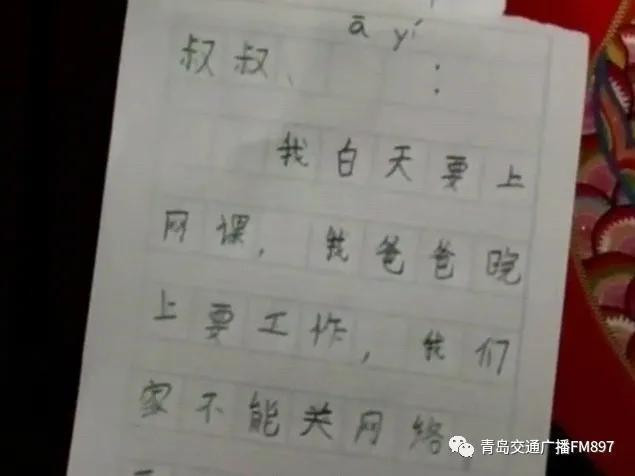 ā yí
叔叔、 :
我白天要上
网课，我爸爸晚
上要工作，我们
家不能关网络
青岛交通广播FM897